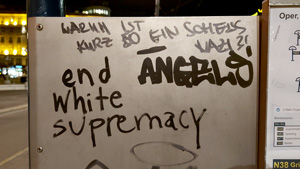 WARUM IST
KURZ SO EIN SCHEISS
NAZI?!
end
white
supremacy
Oper,
N38